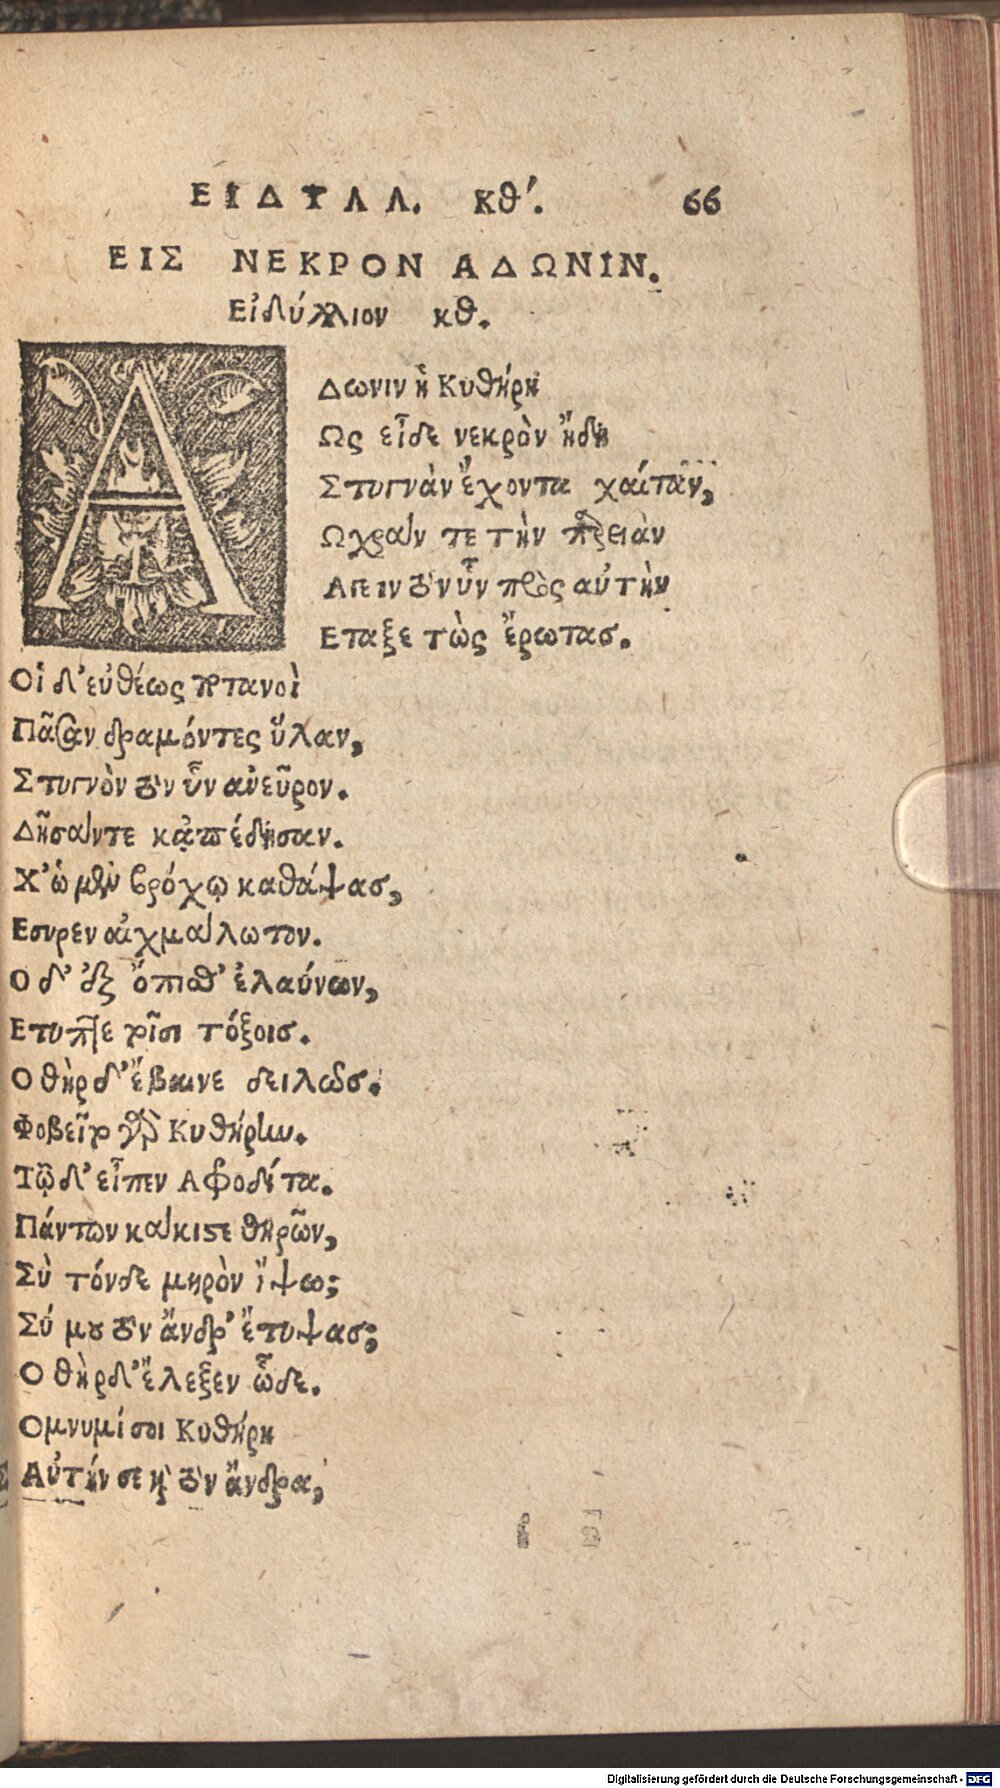 ΕΙΔΥΛΛ. κθ΄. 66
ΕΙΣ ΝΕΚΡΟΝ ΑΔΩΝΙΝ.
Εἰδύλλιον κθ.
ΑΔωνιν ἡ Κυθήρη
Ως εἶδε νεκρὸν ἤδη
Στυγνὰν ἔχοντα χαίταν,
Ωχράν τε τὴν παρειὰν
Αγειν τὸν ὗν πρὸς αὐτὴν
Εταξε τὼς ἔρωτας.
Οἱ δ' εὐθέως ποτανοὶ
Πᾶσαν δραμόντες ὕλαν,
Στυγνὸν τὸν ὗν ἀνεῦρον.
Δῆσάν τε κᾀπέδησαν.
Χ' ὡ μὲν βρόχῳ καθάψας,
Εσυρεν αἰχμάλωτον.
Ο δ' ἐξ ὄπισθ' ἐλαύνων,
Ετυπτε τοῖσι τόξοις.
Ο θὴρ δ' ἔβαινε δειλῶς.
Φοβεῖτο γὰρ Κυθήρην.
Τῷ δ' εἶπεν Αφροδίτα.
Πάντων κάκιστε θηρῶν,
Σὺ τόνδε μηρὸν ἴψω;
Σύ μου τὸν ἄνδρ' ἔτυψας;
Ο θὴρ δ' ἔλεξεν ὧδε.
Ομνυμί σοι Κυθήρη
Αὐτήν σε καὶ τὸν ἄνδρα,
Digitalisierung gefördert durch die Deutsche Forschungsgemeinschaft - DFG